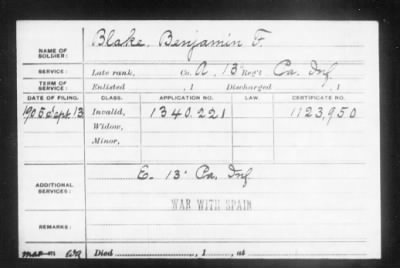 NAME OF SOLDIER: Blake, Benjamin F.
SERVICE: Late rank, Co. A, 13" Reg't Pa. Inf
TERM OF SERVICE: Enlisted , 1 Discharged , 1
DATE OF FILING. CLASS. APPLICATION NO. LAW. CERTIFICATE NO.
1905 Sept 13 Invalid, 1340.221 1123,950
Widow,
Minor,
ADDITIONAL SERVICES: E. 13" Pa. Inf
WAR WITH SPAIN
REMARKS:
Died , 1 , at